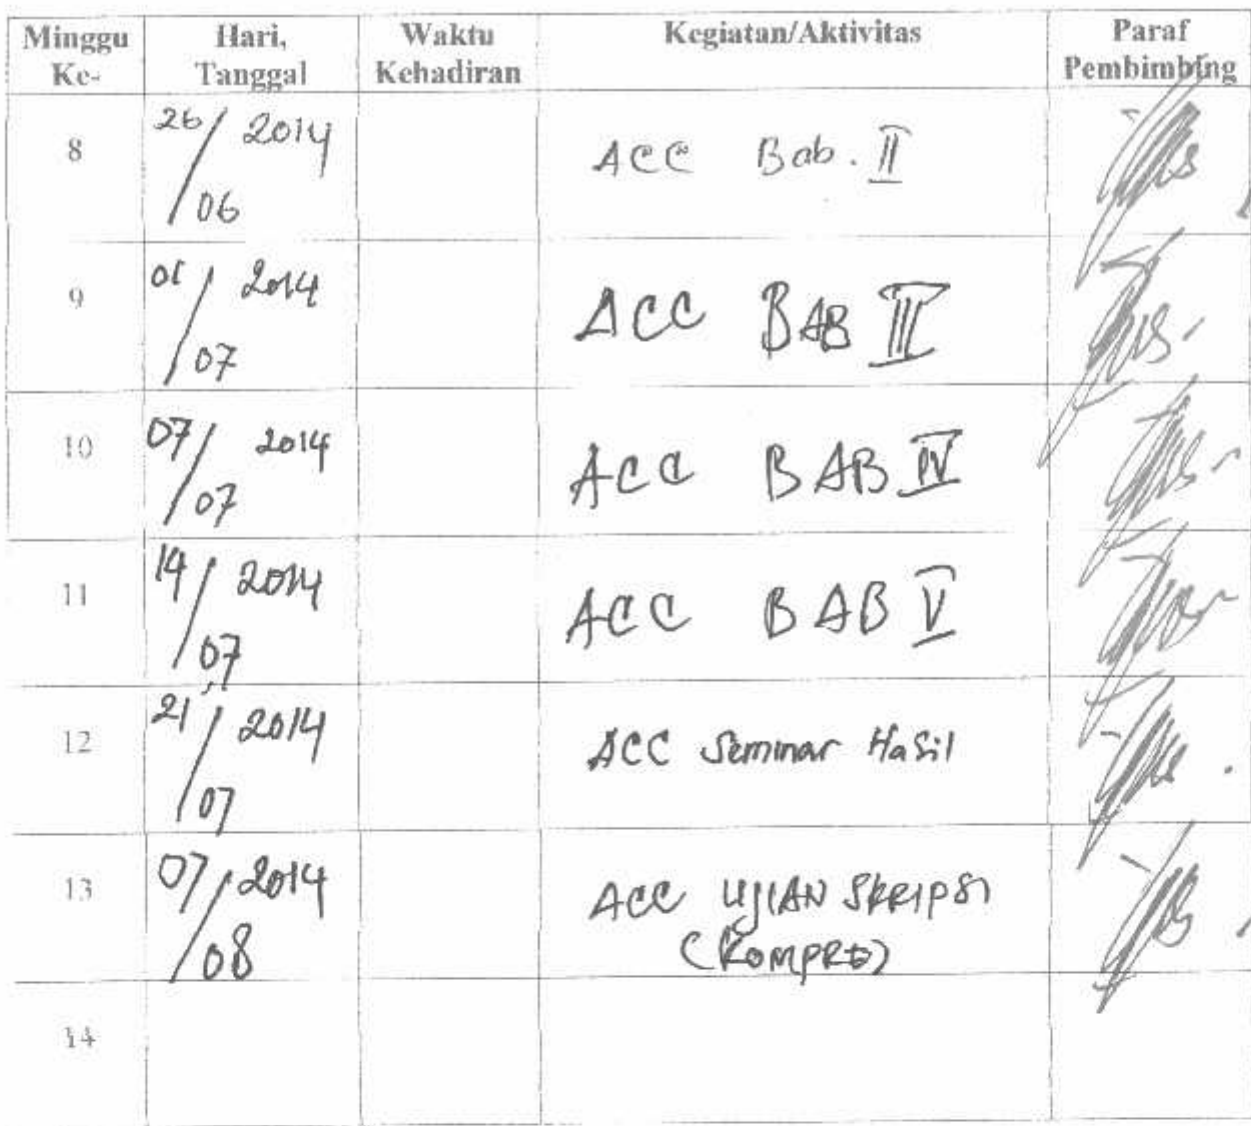 Minggu Ke- Hari, Tanggal Waktu Kehadiran Kegiatan/Aktivitas Paraf Pembimbing
8 26/06 2014 ACC Bab. II
9 01/07 2014 ACC BAB III
10 07/07 2014 ACC BAB IV
11 14/07 2014 ACC BAB V
12 21/07 2014 ACC Seminar Hasil
13 07/08 2014 ACC UJIAN SKRIPSI
(KOMPRE)
14